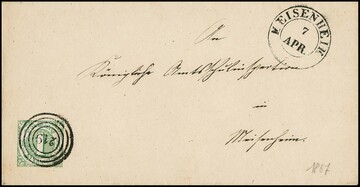 MEISENHEIM
7
APR.
An
Königliche Amtsschulinspection
in
Meisenheim
1867